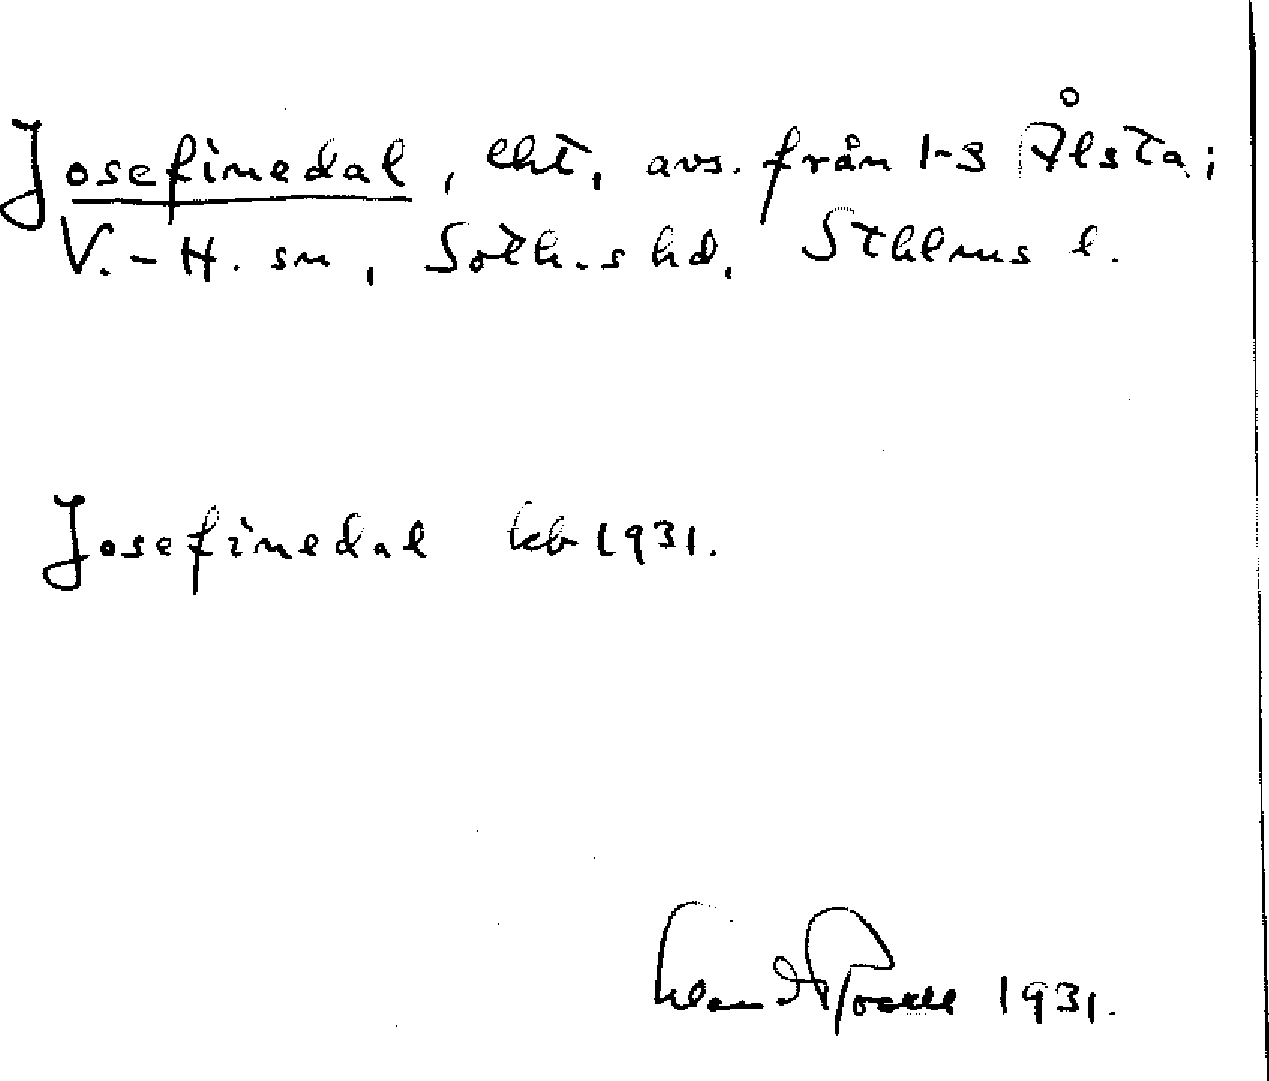 Josefinedal, lht, avs. från 1-3 Ålsta;
V.-H. sn, Soth.s hd, Sthlms l.
Josefinedal kb 1931.
1931.